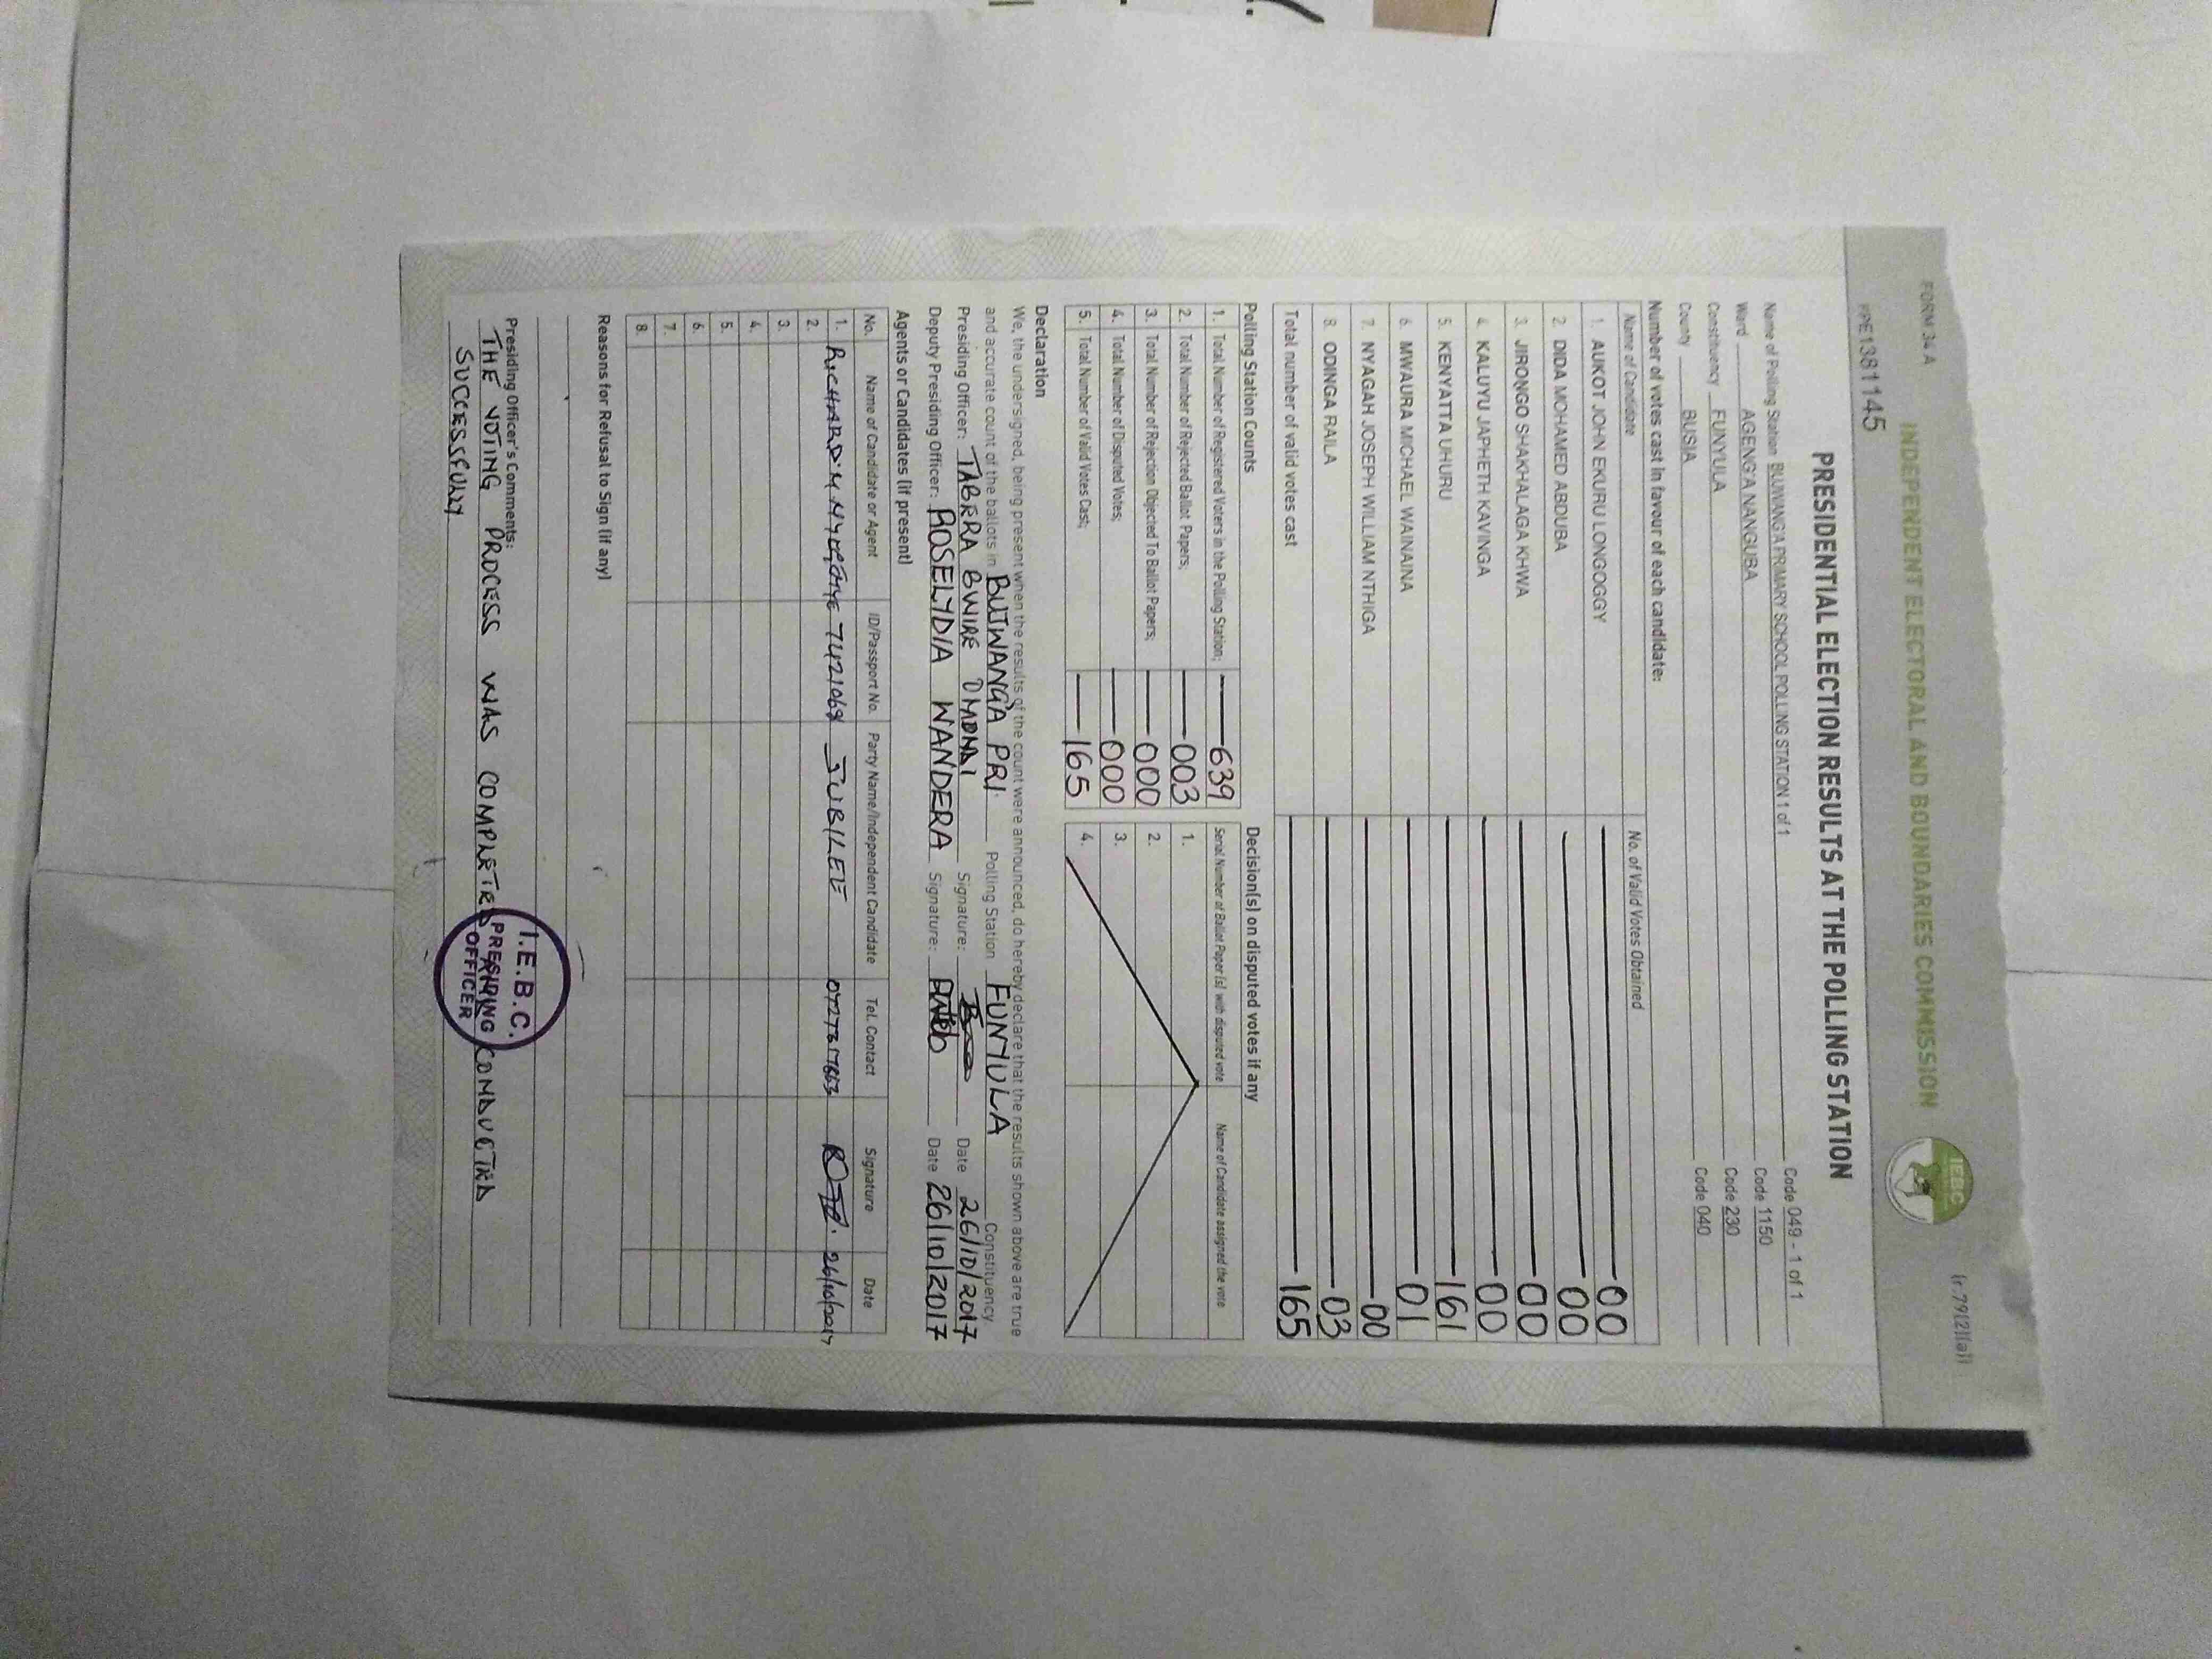 FORM 34 A
(r.79(2)(a))
INDEPENDENT ELECTORAL AND BOUNDARIES COMMISSION
IEBC
PPE1381145
PRESIDENTIAL ELECTION RESULTS AT THE POLLING STATION
Name of Polling Station BUJWANG'A PRIMARY SCHOOL POLLING STATION 1 of 1 Code 049 - 1 of 1
Ward AGENG'A NANGUBA Code 1150
Constituency FUNYULA Code 230
County BUSIA Code 040
Number of votes cast in favour of each candidate:
Name of Candidate No. of Valid Votes Obtained
1. AUKOT JOHN EKURU LONGOGGY 00
2. DIDA MOHAMED ABDUBA 00
3. JIRONGO SHAKHALAGA KHWA 00
4. KALUYU JAPHETH KAVINGA 00
5. KENYATTA UHURU 161
6. MWAURA MICHAEL WAINAINA 01
7. NYAGAH JOSEPH WILLIAM NTHIGA 00
8. ODINGA RAILA 03
Total number of valid votes cast 165
Polling Station Counts
1. Total Number of Registered Voters in the Polling Station; 639
2. Total Number of Rejected Ballot Papers; 003
3. Total Number of Rejection Objected To Ballot Papers; 000
4. Total Number of Disputed Votes; 000
5. Total Number of Valid Votes Cast; 165
Decision(s) on disputed votes if any
Serial Number of Ballot Paper (s) with disputed vote Name of Candidate assigned the vote
1.
2.
3.
4.
Declaration
We, the undersigned, being present when the results of the count were announced, do hereby declare that the results shown above are true
and accurate count of the ballots in BUJWANG'A PRI Polling Station FUNYULA Constituency
Presiding Officer: TABERA BWIRE Signature: Date 26/10/2017
Deputy Presiding Officer: ROSELYDIA WANDERA Signature: Date 26/10/2017
Agents or Candidates (if present)
No. Name of Candidate or Agent ID/Passport No. Party Name/Independent Candidate Tel. Contact Signature Date
1. RICHARD M. 7421069 JUBILEE 26/10/2017
2.
3.
4.
5.
6.
7.
8.
Reasons for Refusal to Sign (if any)
Presiding Officer's Comments:
THE VOTING PROCESS WAS COMPLETED CONDUCTED
SUCCESSFULLY
I.E.B.C.
PRESIDING
OFFICER